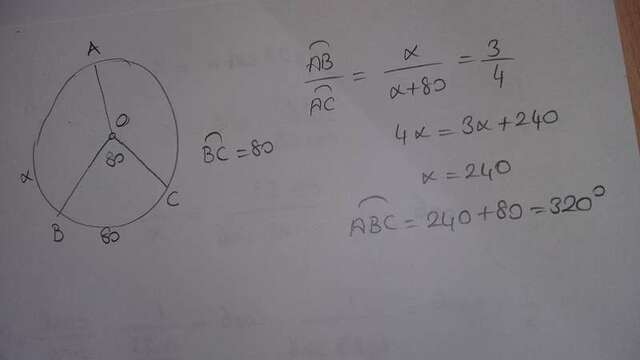 A
O
80
α
B
80
C
B͡C = 80
A͡B / A͡C = α / α+80 = 3/4
4α = 3α + 240
α = 240
A͡BC = 240 + 80 = 320°